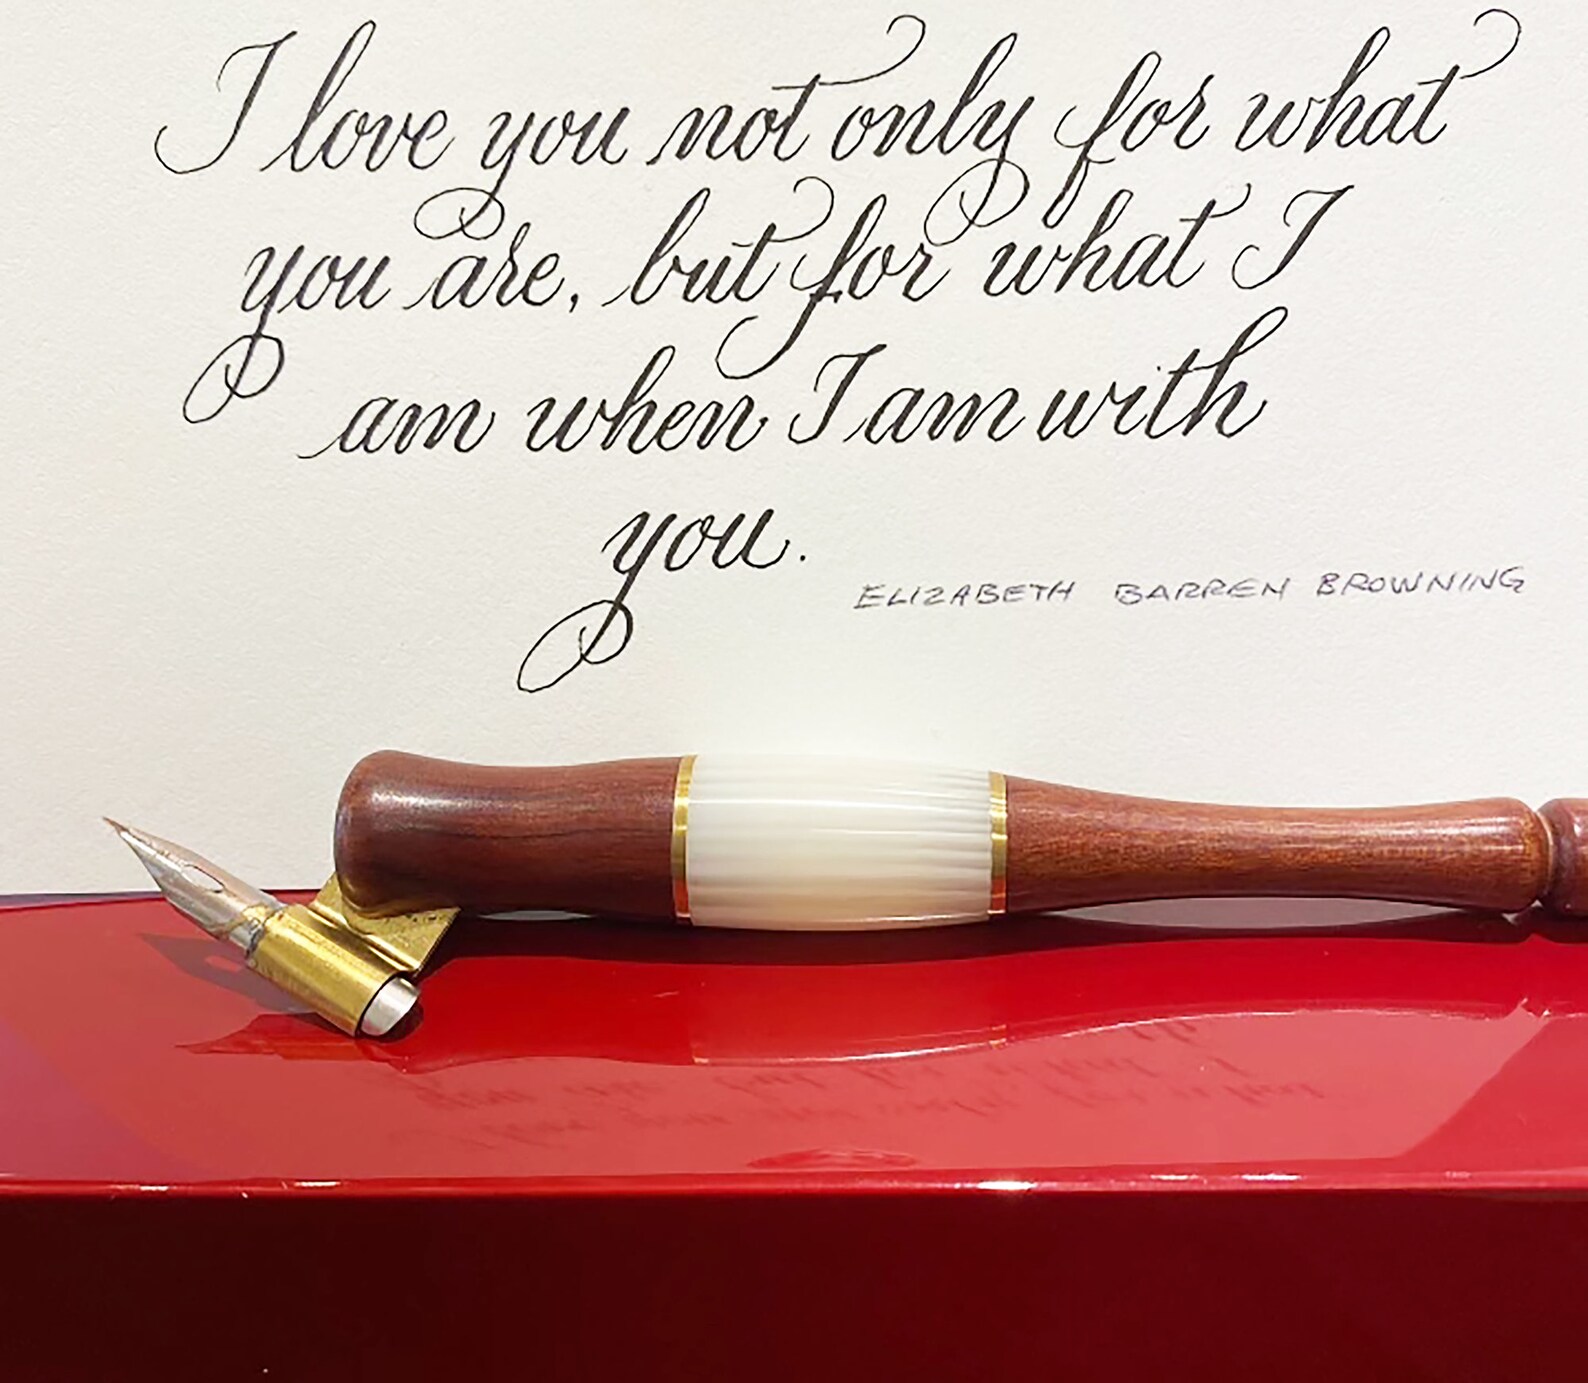 I love you not only for what
you are, but for what I
am when I am with
you.
ELIZABETH BARREN BROWNING